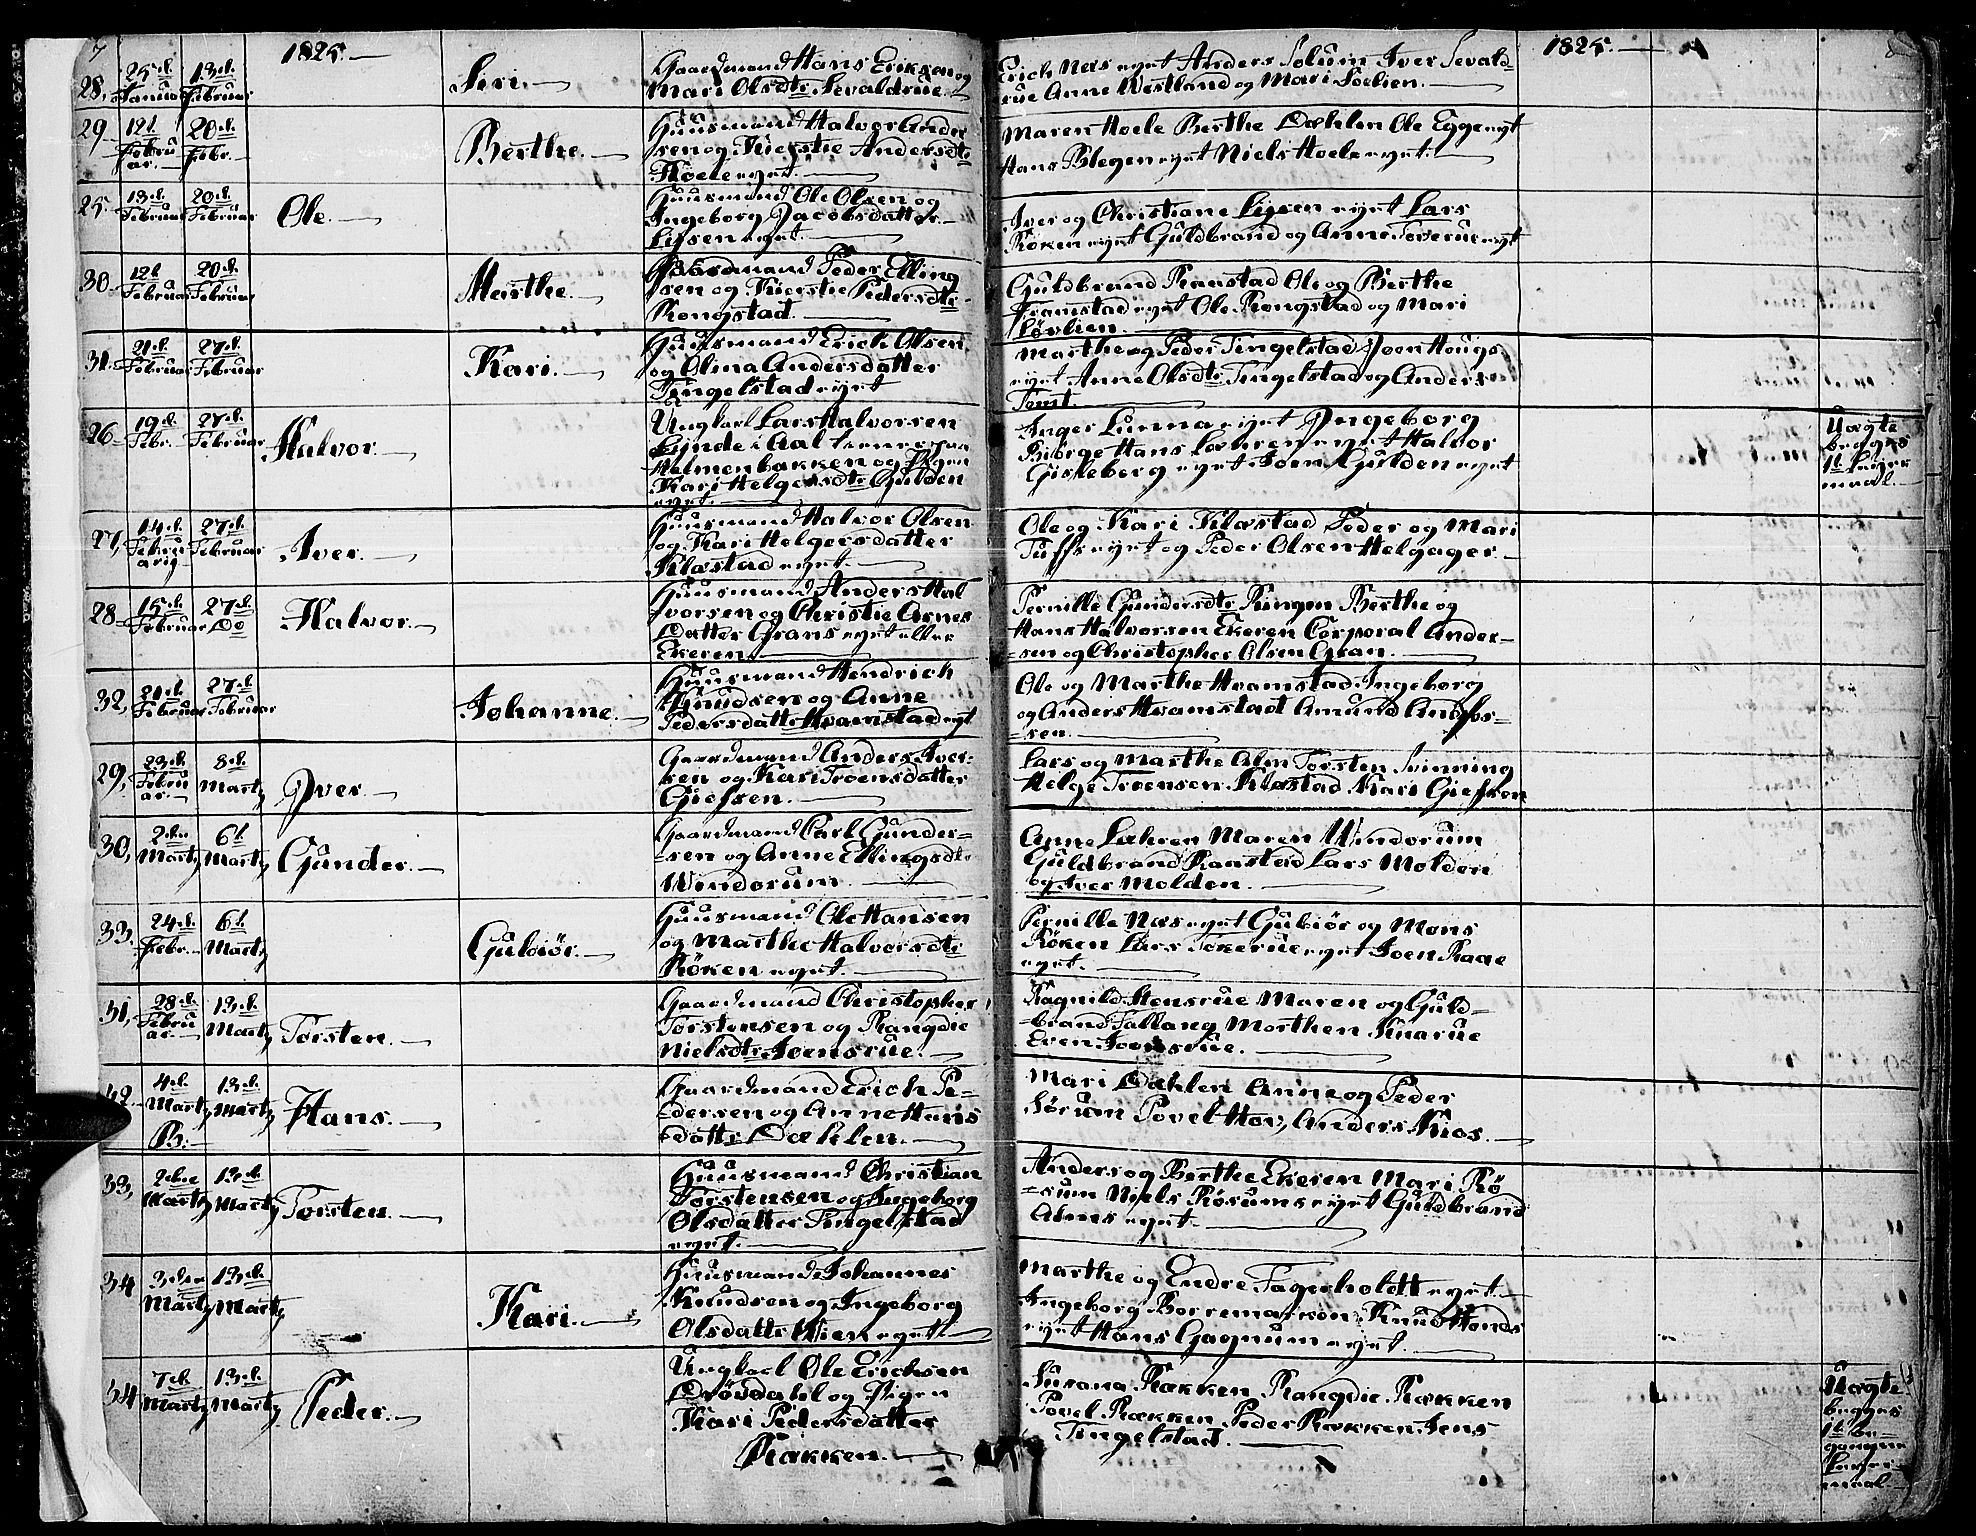 7
1825.
28, 25d. Januar 13d. Februar Siri. Gaardmand Hans Eriksen og
Mari Olsdtr Sevaldrue.
29 12t. Februar. 20d. Febr. Berthe. Huusmand Halvor Ander
sen og Kierstie Andersdtr
Hoele eyet.
25 13d. Februar 20d. Februar Ole. Huusmand Ole Olsen og
Ingeborg Jacobsdatter
eyet.
30. 12t Februar 20d. Februar Marthe. Gaardmand Peder Elling
sen og Kierstie Pedersdtr
Rongstad.
31. 21d. Februar 27d. Februar Kari. Huusmand Erich Olsen
og Olina Andersdatter
Tingelstad eyet
26 19d. Febr. 27d. Februar Halvor. Ungkarl Lars Halvorsen
i Aal
Helmenbakken og Pigen
Kari Helgersdtr Gulden
eyet.
27, 14d. Februarii 27d. Februar Iver. Huusmand Halvor Olsen
og Kari Helgersdatter
Klæstad eyet.
28 15d. Februar 27d. Do Halvor. Huusmand Anders Hal
vorsen og Christie Arnes
Datter Grans eyet eller
Ekeren.
32, 21d. Februar 27d. Februar Johanne. Huusmand Hendrich
Knudsen og Anne
Pedersdattr Hvamstad eyt
29, 23d. Februar 8d. Marty Iver. Gaardmand Anders Iver-
sen og Kari Troensdatter
Giefsen.
30, 2den Marty 6t Marty Gunder. Gaardmand Carl Gunder=
=sen og Anne Ellingsdtr
Windorum.
33. 24d. Febr. 6t. Marty Gubiør. Huusmand Ole Hansen
og Marthe Halvorsdtr
Røken eyet.
31, 28d. Februar 13d. Marty Torsten. Gaardmand Christopher
Torstensen og Rangdie
Nielsdtr Joensrue.
32 4d. Marty 13d. Marty Hans. Gaardmand Erich Pe=
=dersen og Anne Hans
dattr Dæhlen.
33, 2den Marty 13d. Marty Torsten. Huusmand Christian
Torstensen og Ingeborg
Olsdatter Tingelstad
eyet.
34 3den Marty 13d. Marty Kari. Huusmand Johannes
Knudsen og Ingeborg
Olsdattr Hvien eyet.
34 7d. Marty 13d. Marty Peder. Ungkarl Ole Erichsen
Drövdahl og Pigen
Kari Pedersdatter
Rækken.
1825.
8
Erich Næs eyet Anders Solum Iver Sevald=
rue Anne Westland og Mari Soelien.
Maren Hoele Berthe Dæhlen Ole Egge eyt
Hans Blegen eyet Niels Hoele eyet.
Iver og Christiane eyet Lars
Røken eyet Guldbrand og Anne eyt
Guldbrand Raastad Ole og Berthe
Framstad eyet Ole Rongstad og Mari
Løvlien.
Marthe og Peder Tingelstad Joen Hougs
eyet Anne Olsdtr Tingelstad og Anders
Tomt.
Inger Lunna eyet Ingeborg
Biørge Hans Læhren eyet Halvor
Gisleberg eyet Joen Gulden eyet
Uægte
begges
1t Leier
maal.
Ole og Kari Klæstad Peder og Mari
Tuffs eyet og Peder Olsen Helgager.
Pernille Gundersdtr Ringen Berthe og
Hans Halvorsen Ekeren Corporal Ander-
=sen og Christopher Olsen Gran.
Ole og Marthe Hvamstad Ingeborg
og Anders Hvamstad Amund Anders=
=sen.
Lars og Marthe Alm Torsten Svinning
Helge Troensen Klæstad Kari Giefsen
Anne Læhren Maren Windorum
Guldbrand Raastad Lars Molden
og Iver Molden.
Pernille Næs eyet Gubiør og Mons
Røken Lars Tokerue eyet Joen Raae
eyet.
Ragnild Stensrue Maren og Guld=
=brand Fallang Morthen Knarue
Even Joensrue.
Mari Dæhlen Anne og Peder
Sørum Povel Hov, Anders Kios.
Anders og Berthe Ekeren Mari Rø
=sum Niels Røsums eyet Guldbrand
Alms eyet.
Marthe og Endre Fagerholdt eyet.
Ingeborg Borremarken Knud Honds
eyet Hans Gagnum eyet.
Susana Rækken Rangdie Rækken
Povel Rækken Peder Rækken Jens
Tingelstad.
Uægte
begges
1t be-
gangne
Leier-
maal.